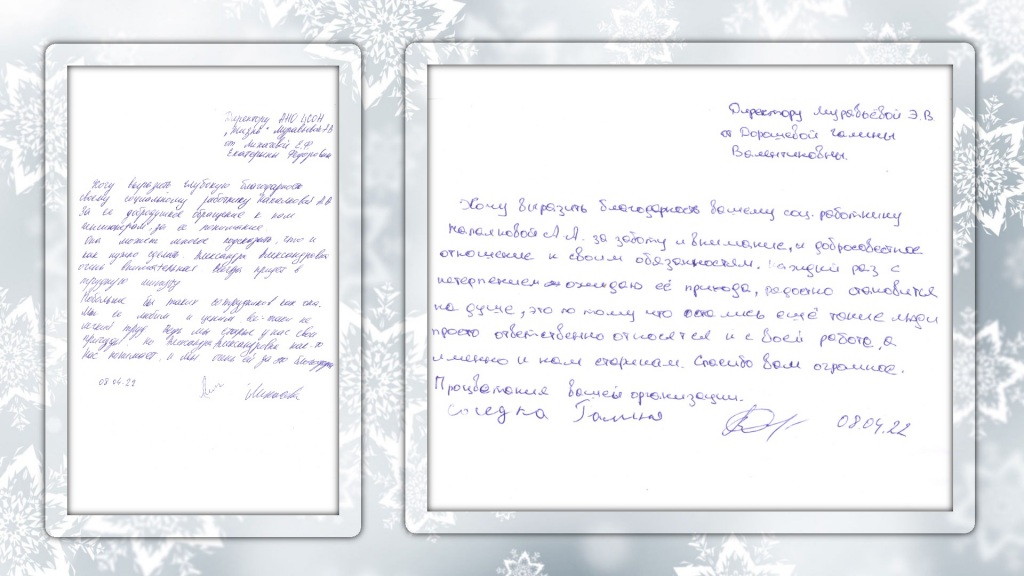 Директору АНО ЦСОН
"Жизнь" Муравьевой Э.В
от Лихачевой Е.Ф
Екатерины Федоровны
Хочу выразить глубокую благодарность
своему социальному работнику Напалковой А.А
За ее добродушное обращение к нам
пенсионерам, за ее понимание
Она может многое подсказать, что и
как нужно сделать. Александра Александровна
очень внимательная всегда придет в
трудную минуту
Побольше бы таких сотрудников как она.
Мы ее любим и ценим
труд ведь мы старые у нас свои
причуды но Александра Александровна как-то
нас понимает, и мы очень ей за это благодарны
08.04.22
Директору Муравьёвой Э.В
от Доранцевой Галины
Валентиновны.
Хочу выразить благодарность вашему соц. работнику
Напалковой А.А. за заботу и внимание, и добросовестное
отношение к своим обязанностям. Каждый раз с
нетерпением ожидаю её прихода, радостно становится
на душе, это потому что остались ещё такие люди
просто ответственно относятся и к своей работе, а
именно и к нам старикам. Спасибо вам огромное.
Процветания вашей организации.
соседка Галина
08.04.22